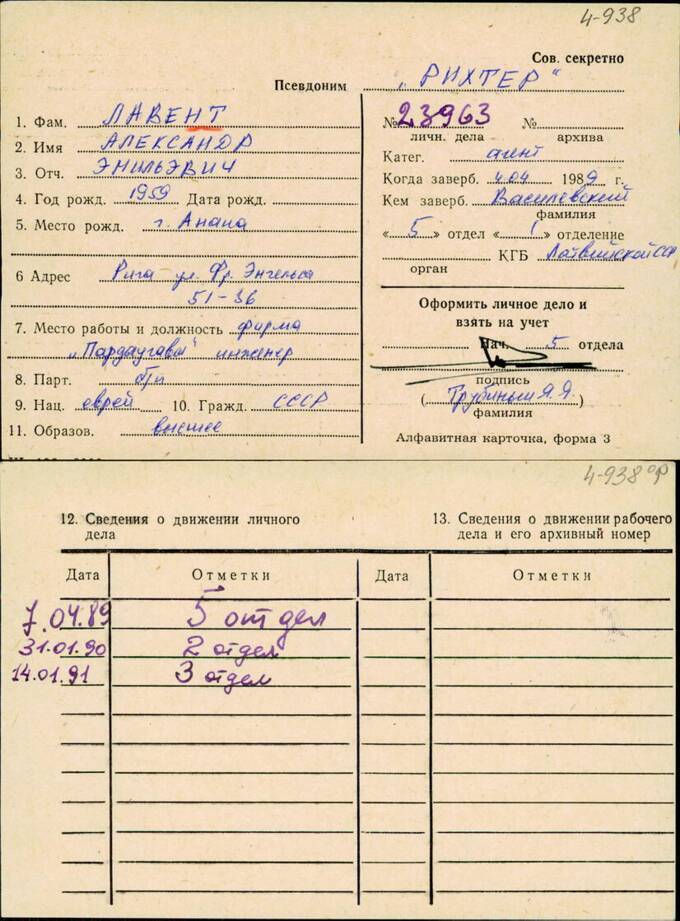 4-938
Сов. секретно
Псевдоним „РИХТЕР“
1. Фам. ЛАВЕНТ
2. Имя АЛЕКСАНДР
3. Отч. ЭМИЛЬЭВИЧ
4. Год рожд. 1959 Дата рожд.
5. Место рожд. г. Анапа
6 Адрес Рига ул. Фр. Энгельса
51-36
7. Место работы и должность фирма
„Пардаугава“ инженер
8. Парт. б/п
9. Нац. еврей 10. Гражд. СССР
11. Образов. высшее
№ 23963 №
личн. дела архива
Катег. агент
Когда заверб. 4.04 1989 г.
Кем заверб. Василевский
фамилия
«5» отдел «1» отделение
КГБ Латвийской ССР
орган
Оформить личное дело и
взять на учет
Нач. 5 отдела
подпись
(Трубиньш Я.Я.)
фамилия
Алфавитная карточка, форма 3
4-938 об
12. Сведения о движении личного
дела
13. Сведения о движении рабочего
дела и его архивный номер
Дата Отметки Дата Отметки
7.04.89 5 отдел
31.01.90 2 отдел
14.01.91 3 отдел